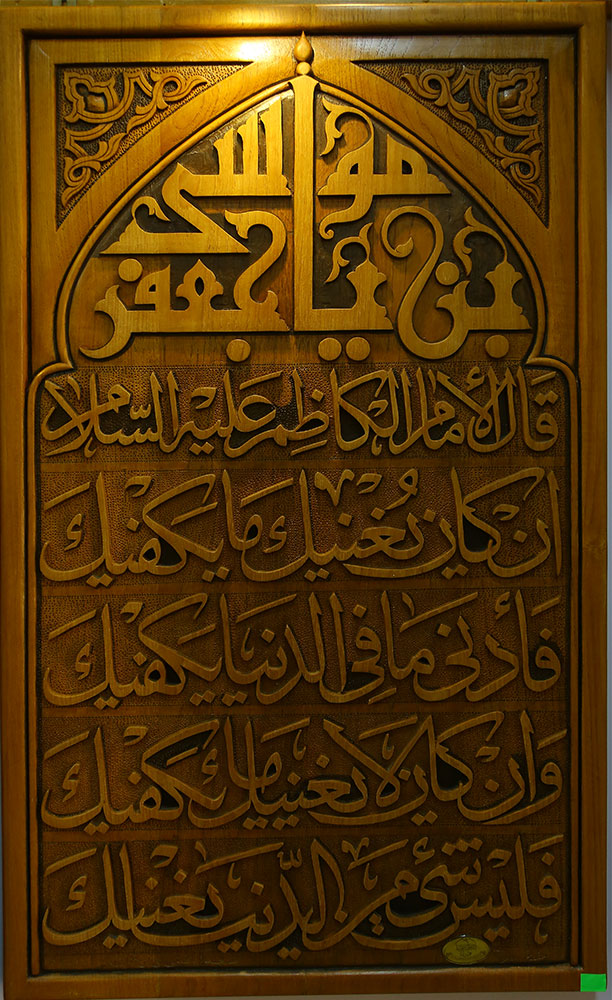 يا موسى
بن جعفر
قَالَ الأمام الكاظِم عَليْه السَّلام
ان كان يُغنيك ما يكفيك
فَأدنى مَا فِي الدنيا يكفيك
وَان كان لا يغنيك ما يكفيك
فَليْس شئ من الدّنيا يغنيك